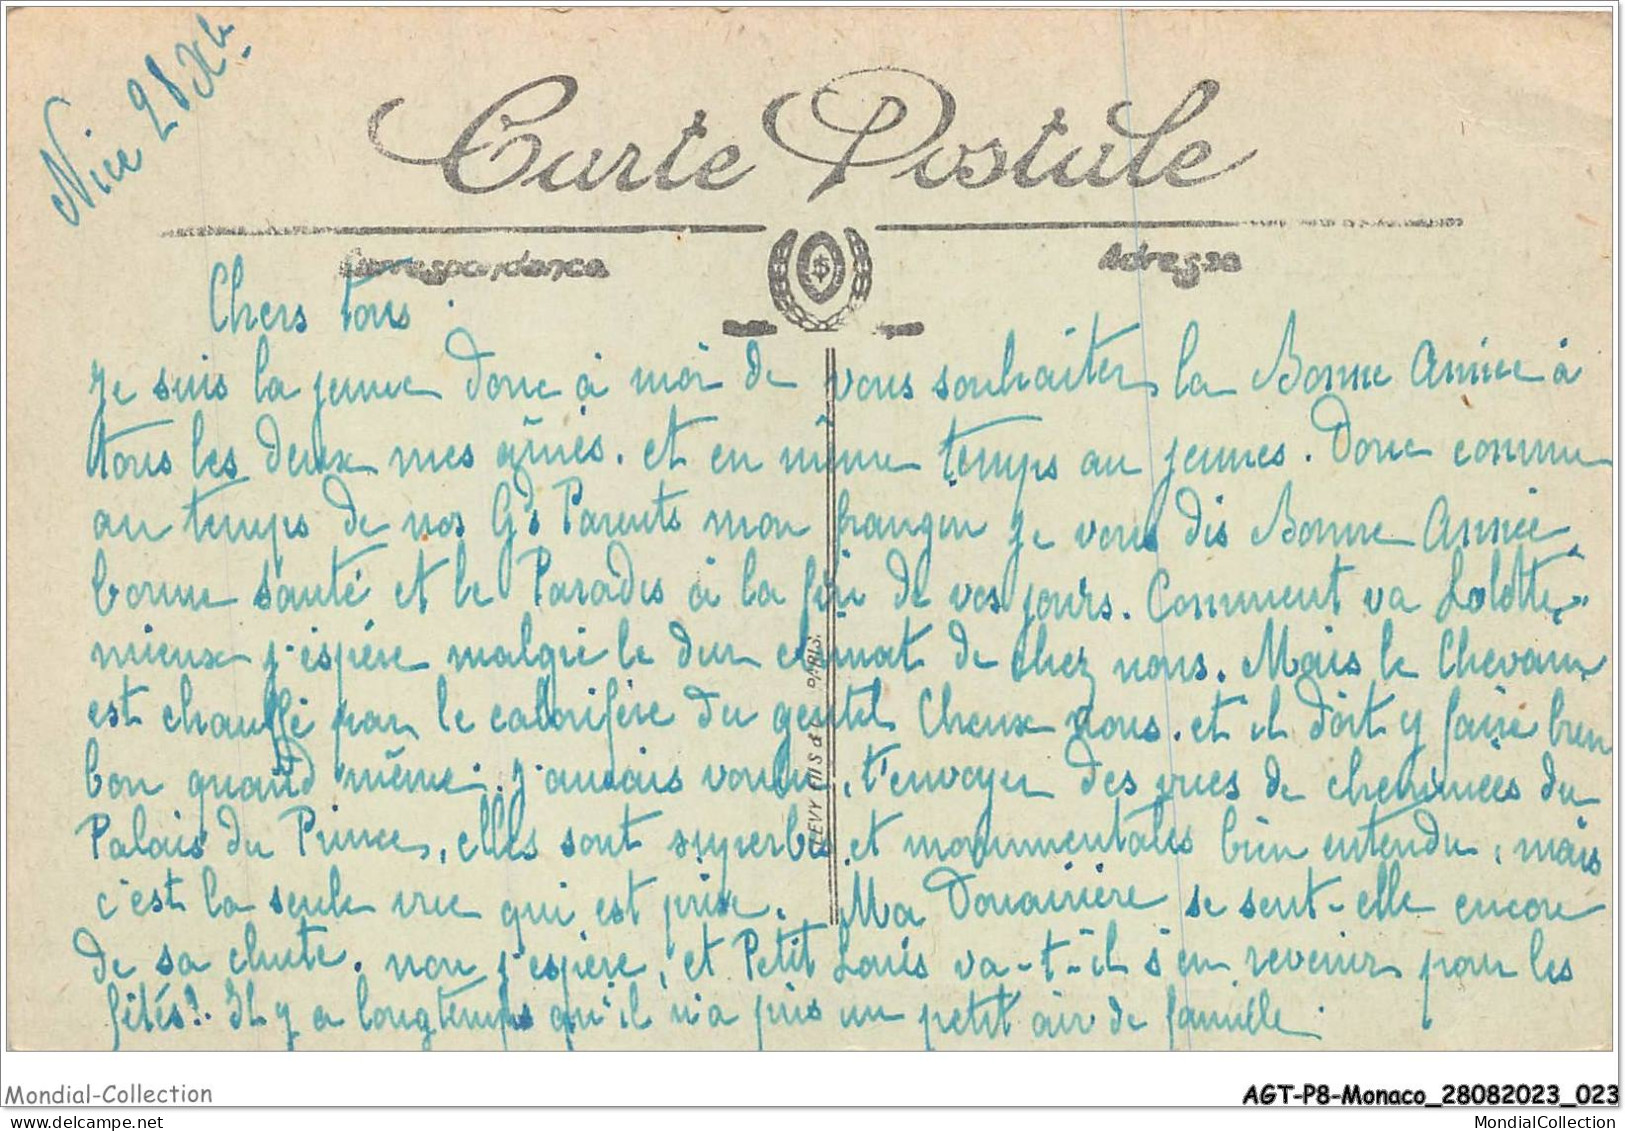 Nice 28 Xbre
Carte Postale
Correspondance
Adresse
Chers tous.
Je suis la jeune donc à moi de vous souhaiter la Bonne Année à
tous les deux mes aînés. et en même temps au jeunes. Donc comme
au temps de nos Gds Parents mon frangin je vous dis Bonne Année,
bonne santé et le Paradis à la fin de vos jours. Comment va Lolotte,
mieux j'espère malgré le dur climat de chez nous. Mais le
est chauffé par le calorifère du gentil Cheux nous. et il doit y faire bien
bon quand même. J'aurais voulu, t'envoyer des vues de cheminées du
Palais du Prince, elles sont superbes et monumentales bien entendu, mais
c'est la seule vue qui est prise. Ma Douairière se sent-elle encore
de sa chute. non j'espère, et Petit Louis va-t-il s'en revenir pour les
fêtes? Il y a longtemps qu'il n'a pris un petit air de famille.
LEVY FILS & PARIS.
Mondial-Collection
AGT-P8-Monaco_28082023_023
MondialCollection